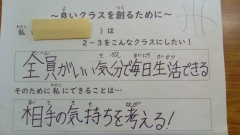 ～良いクラスを創るために～
私（　　　）は
2－3をこんなクラスにしたい！
全員がいい気分で毎日生活できる
そのために私にできることは…
相手の気持ちを考える！